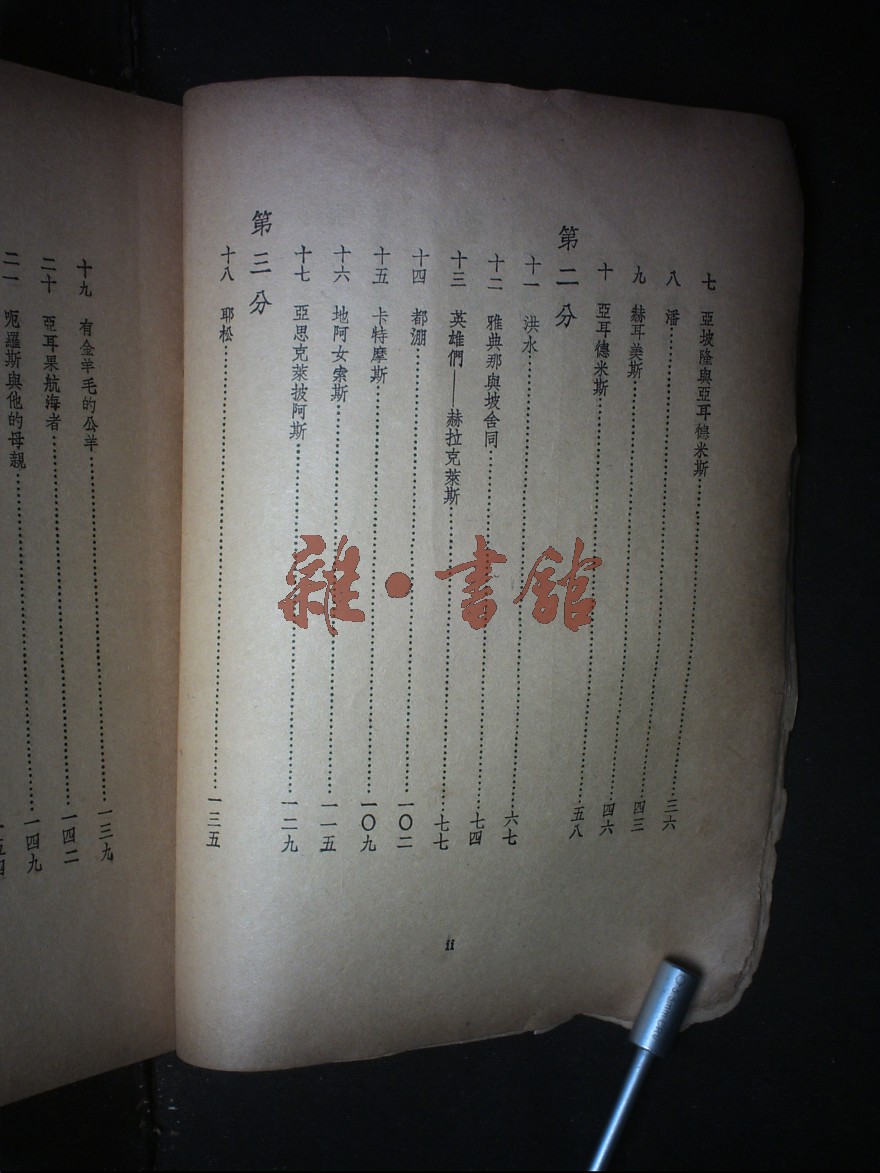 七 亞坡隆與亞耳德米斯……三六
八 潘……四三
九 赫耳美斯……四六
十 亞耳德米斯……五八
第二分
十一 洪水……六七
十二 雅典那與坡舍同……七四
十三 英雄們——赫拉克萊斯……七七
十四 都淜……一〇二
十五 卡特摩斯……一〇九
十六 地阿女索斯……一一五
十七 亞思克萊披阿斯……一二九
第三分
十八 耶松……一三五
ii
十九 有金羊毛的公羊……一三九
二十 亞耳果航海者……一四二
二一 呃羅斯與他的母親……一四九
雜·書館